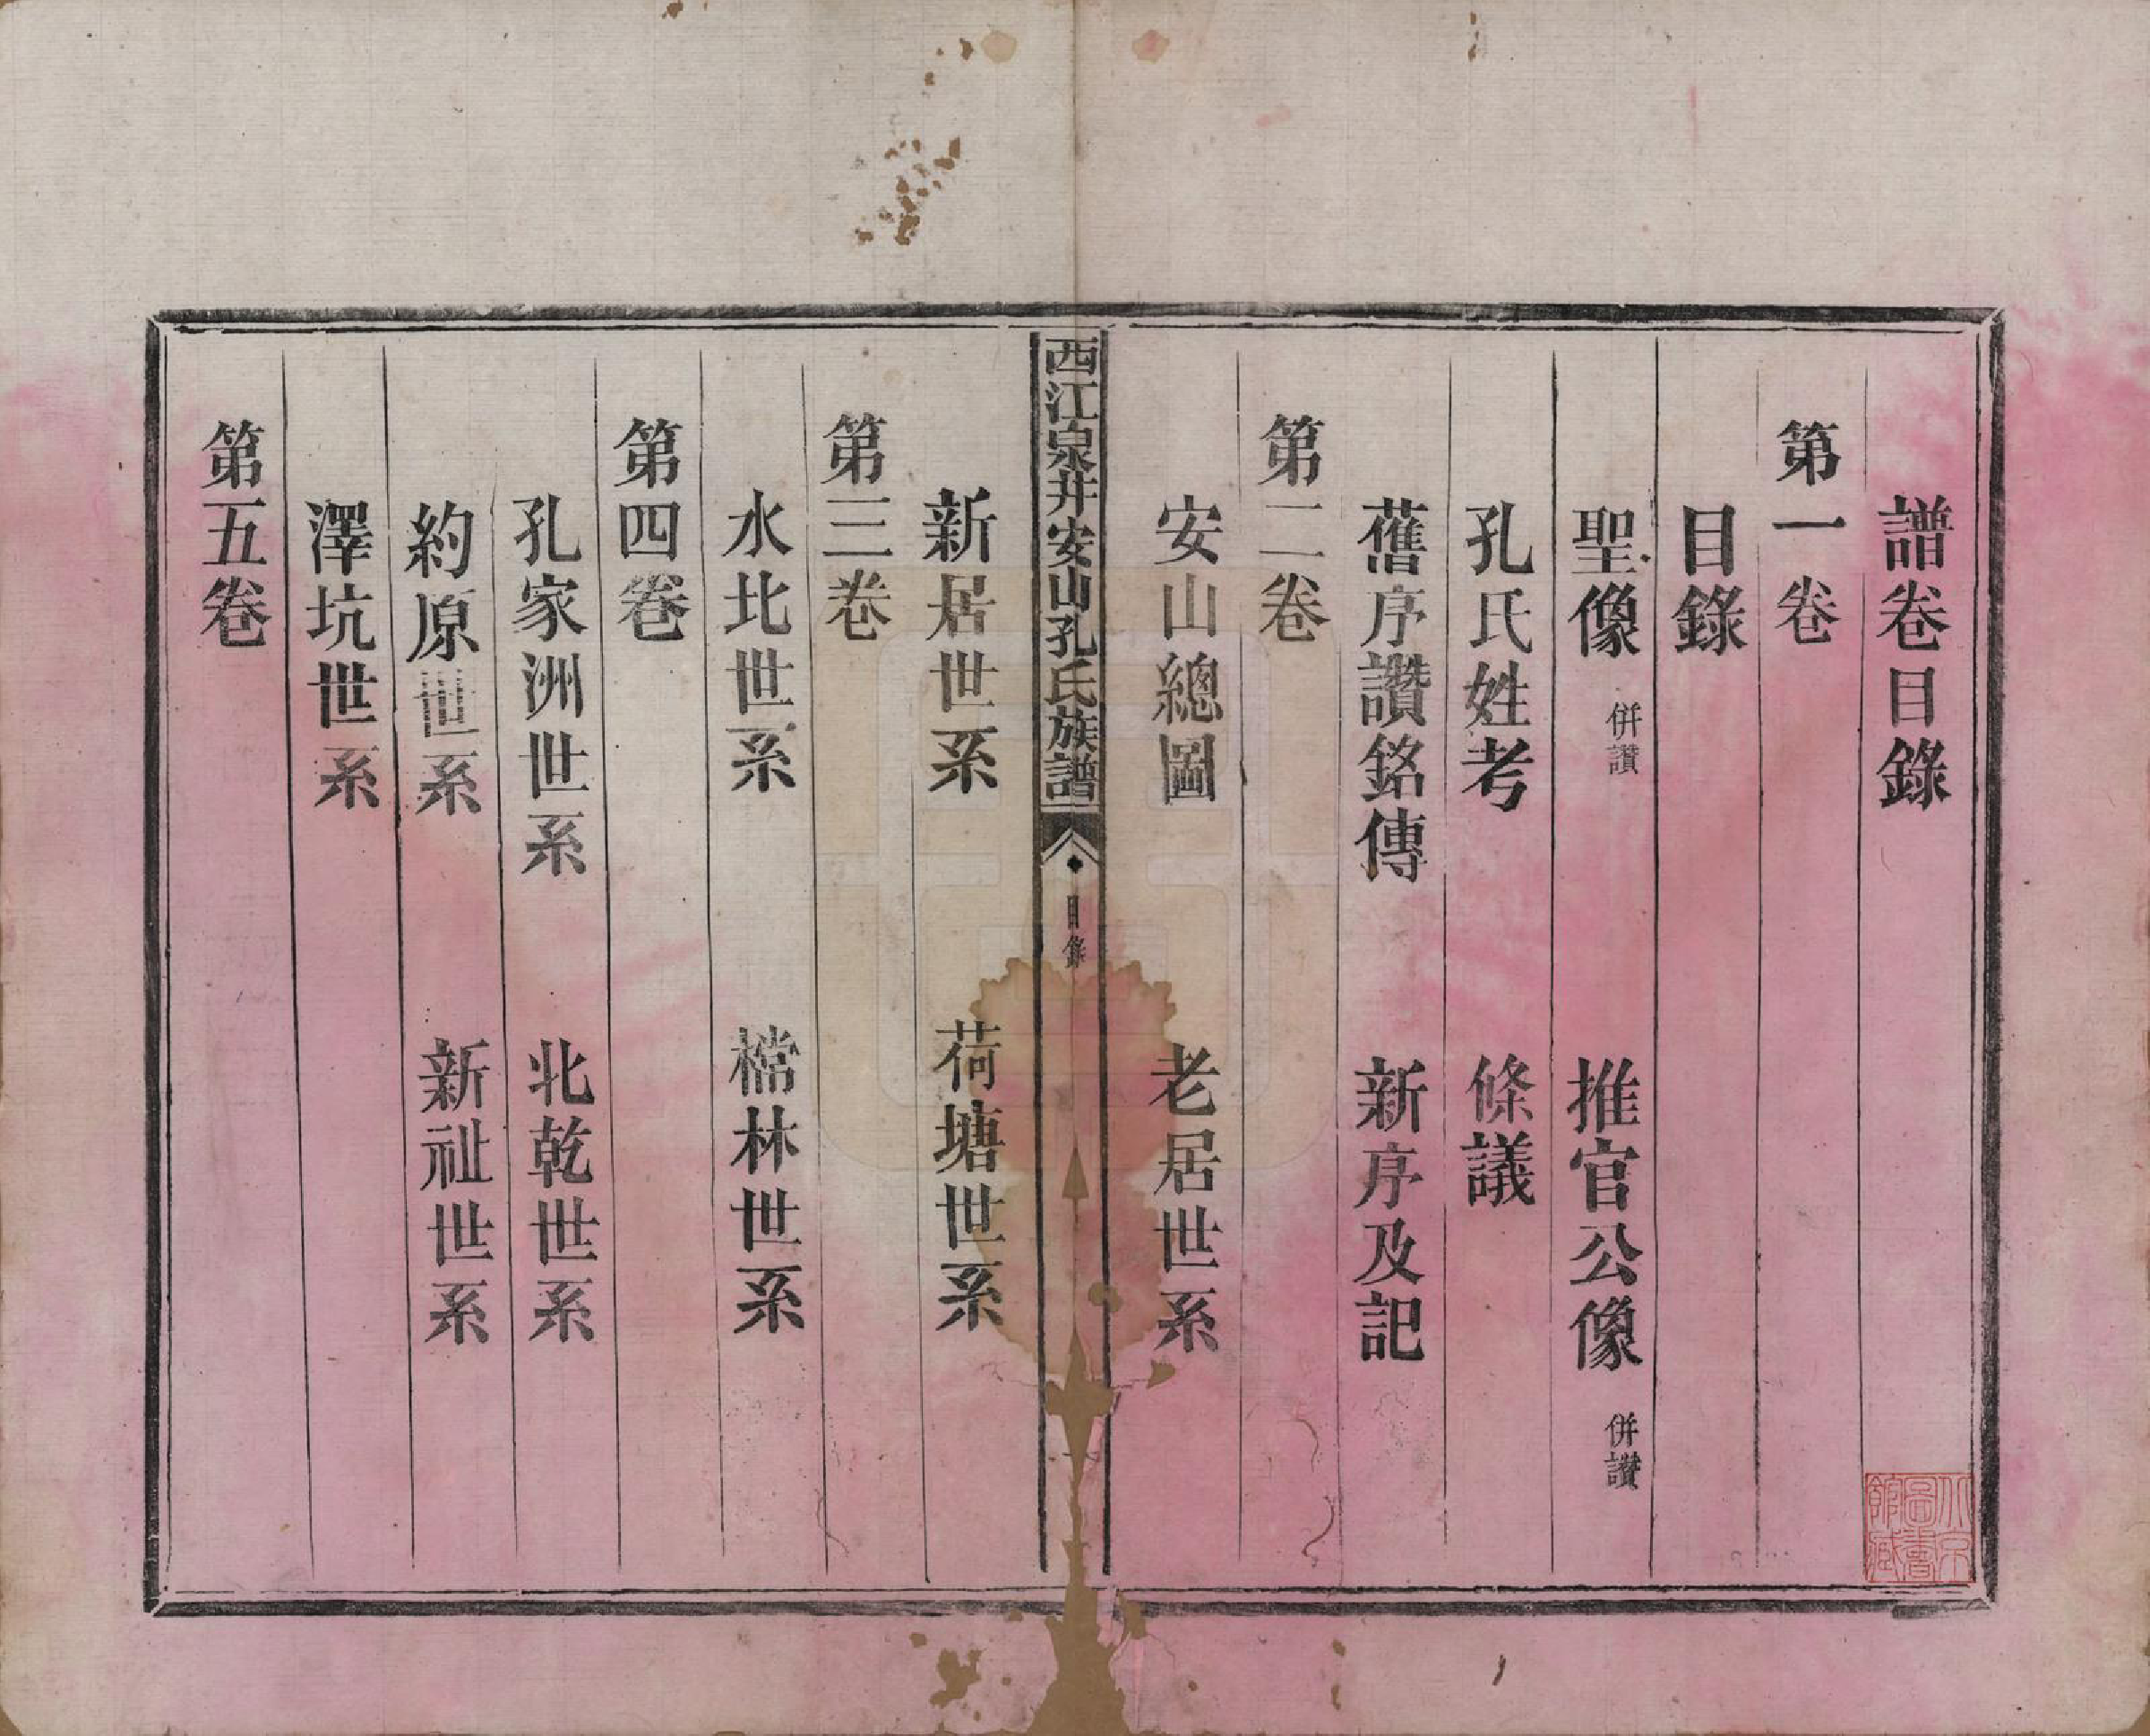 譜卷目錄
第一卷
目錄
聖像 併讚 推官公像 併讚
孔氏姓考 條議
舊序讚銘傳 新序及記
第二卷
安山總圖 老居世系
西江泉井安山孔氏族譜 目錄 一
新居世系 荷塘世系
第三卷
水北世系 檔林世系
第四卷
孔家洲世系 北乾世系
約原世系 新祉世系
澤坑世系
第五卷
北京圖書館藏